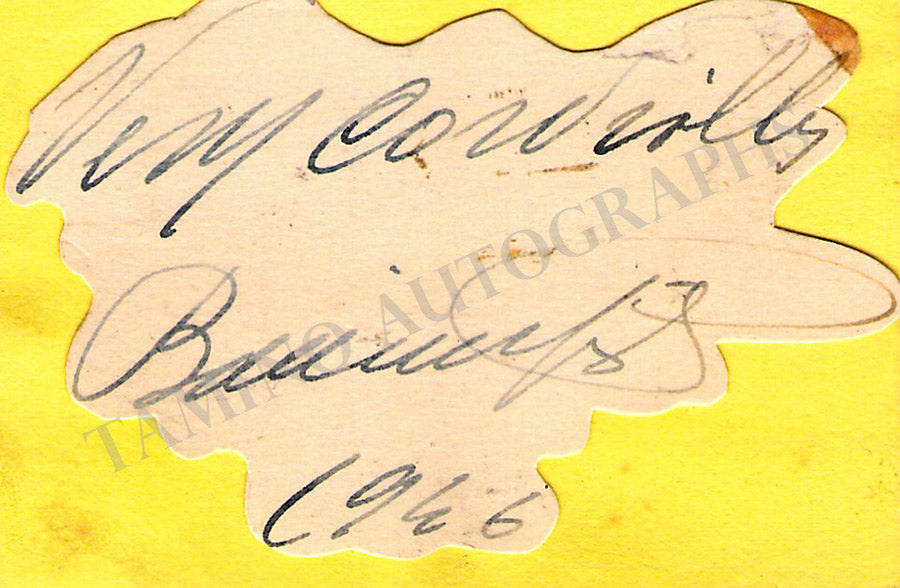 Very Cordially
1946
TAMINO AUTOGRAPHS